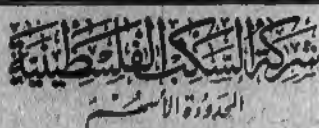 شركة السكب الفلسطينية
المحدودة الأسهم